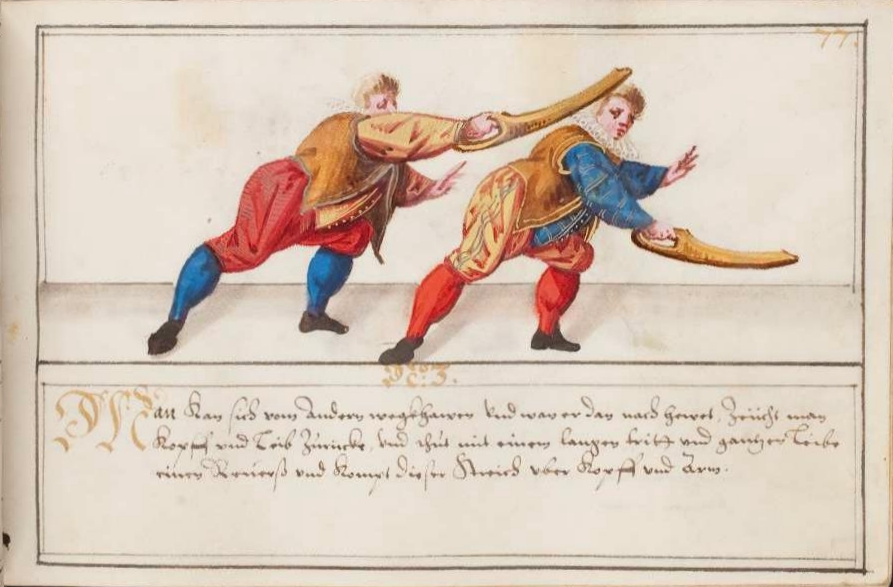 77.
No: 3.
Man Kan sich vom Andern wegkhawen Vnd wan er dan nach hewet, Zeücht man
Kopff vnd Leib Zuricke, vnd thut mit einem langen tritt vnd gantzen Leibe
einen Reuerß vnd Kompt dieser Streich vber Kopff vnd Arm.